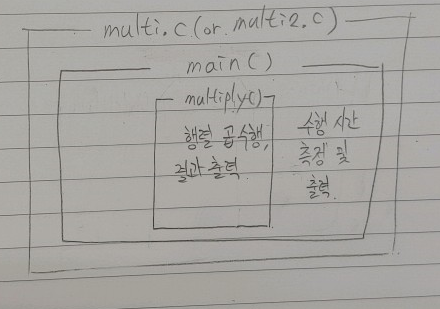 multi.c (or. multi2.c)
main()
multiply()
행렬 곱 수행,
결과 출력.
수행 시간
측정 및
출력.